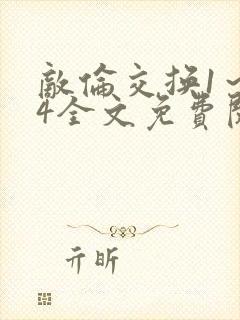 敵倫交换1~
4全文免費閱
亓昕